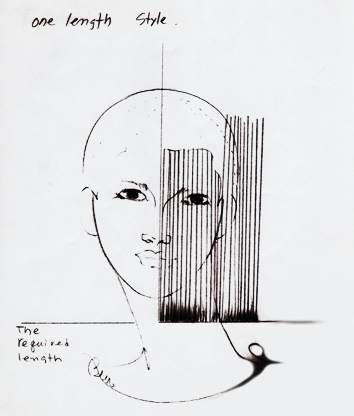 one length Style.
The
required
length